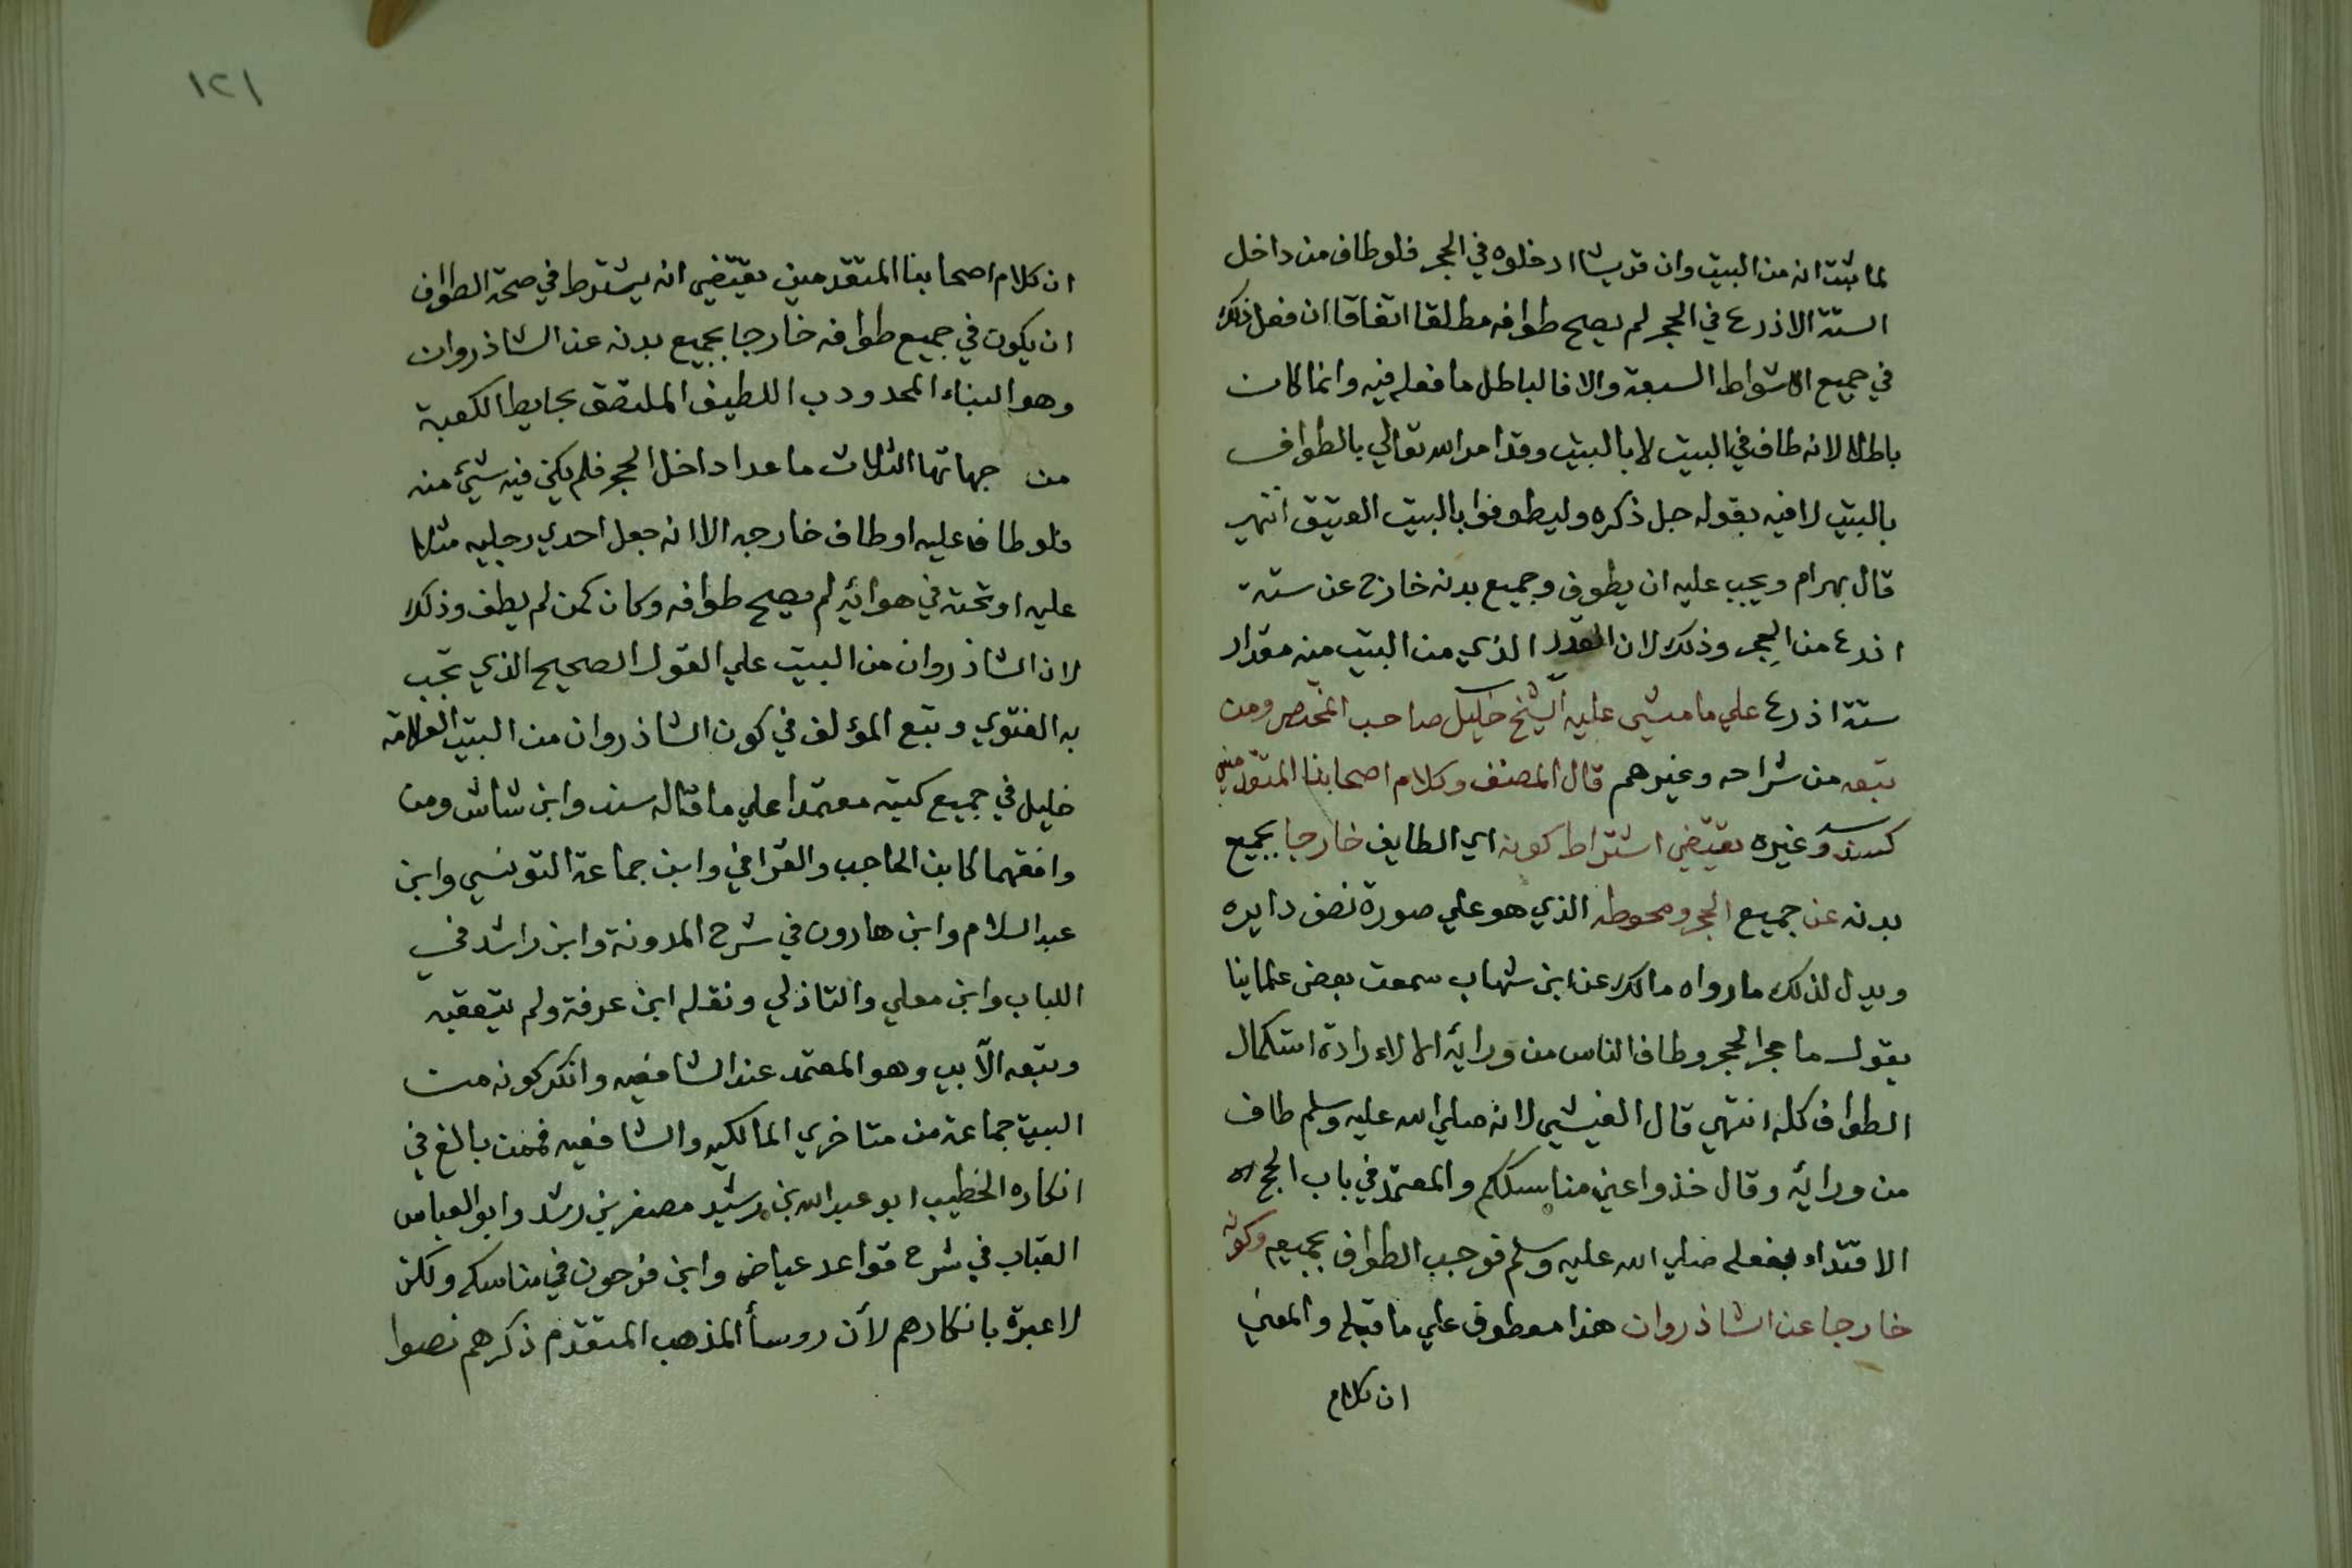 لما ثبت انه من البيت وان قريشا ادخلوه في الحجر فلو طاف من داخل
الستة الاذرع في الحجر لم يصح طوافه مطلقا اتفاقا ان فعل ذلك
في جميع الاشواط السبعة والا فالباطل ما فعله فيه وانما كان
باطلا لانه طاف في البيت لا بالبيت وقد امر الله تعالي بالطواف
بالبيت لا فيه بقوله جل ذكره وليطوفوا بالبيت العتيق انتهي
قال بهرام ويجب عليه ان يطوف وجميع بدنه خارج عن ستة
اذرع من الحجر وذلك لان القدر الذي من البيت منه مقدار
ستة اذرع علي ما مشي عليه الشيخ خليل صاحب المختصر ومن
تبعه من شراحه وغيرهم قال المصنف وكلام اصحابنا المتقدمين
كسند وغيره يقتضي اشتراط كونه اي الطايف خارجا بجميع
بدنه عن جميع الحجر ومحوطه الذي هو علي صورة نصف دايره
ويدل لذلك ما رواه مالك عن ابن شهاب سمعت بعض علماينا
يقول ما حجر الحجر وطاف الناس من ورائه الا لارادة استكمال
الطواف كله انتهي قال الفيشي لانه صلي الله عليه وسلم طاف
من ورائه وقال خذوا عني مناسككم والمعتمد في باب الحج
الاقتداء بفعله صلي الله عليه وسلم فوجب الطواف بجميعه وكونه
خارجا عن الشاذروان هذا معطوف علي ما قبله والمعني
ان كلام
١٢١
ان كلام اصحابنا المتقدمين يقتضي انه يشترط في صحة الطواف
ان يكون في جميع طوافه خارجا بجميع بدنه عن الشاذروان
وهو البناء المحدودب اللطيف الملتصق بحايط الكعبة
من جهاتها الثلاث ما عدا داخل الحجر فلم يكن فيه شيئ منه
فلو طاف عليه او طاف خارجه الا انه جعل احدي رجليه مثلا
عليه او تحته في هوائه لم يصح طوافه وكان كمن لم يطف وذلك
لان الشاذروان من البيت علي القول الصحيح الذي تجب
به الفتوي وتبع المؤلف في كون الشاذروان من البيت العلامة
خليل في جميع كتبه معتمدا علي ما قاله سند وابن شاش ومن
وافقهما كابن الحاجب والقرافي وابن جماعة التونسي وابن
عبد السلام وابن هارون في شرح المدونة وابن راشد في
اللباب وابن معلي والتاذلي ونقله ابن عرفة ولم يتعقبه
وتبعه الآبي وهو المعتمد عند الشافعيه وانكر كونه من
البيت جماعة من متاخري المالكيه والشافعيه فممن بالغ في
انكاره الخطيب ابو عبد الله بن رشيد مصغر بن رشد وابو العباس
القباب في شرح قواعد عياض وابن فرحون في مناسكه ولكن
لا عبرة بانكارهم لأن روسأ المذهب المتقدم ذكرهم نصوا